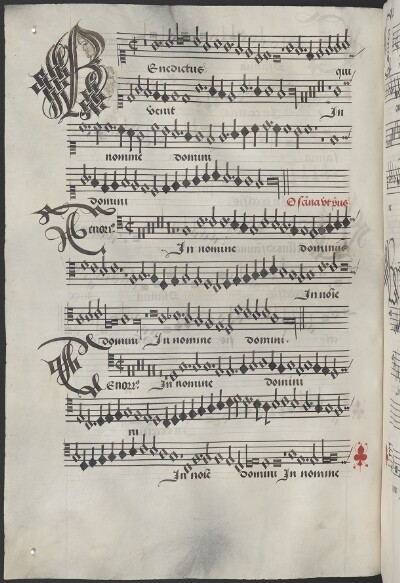 Benedictus qui
venit In
nomine domini
domini Osāna vt p̄us
Tenor In nomine dominus
In noīe
domini In nomine domini.
Tenor In nomine domini
ni
In noīe domini In nomine